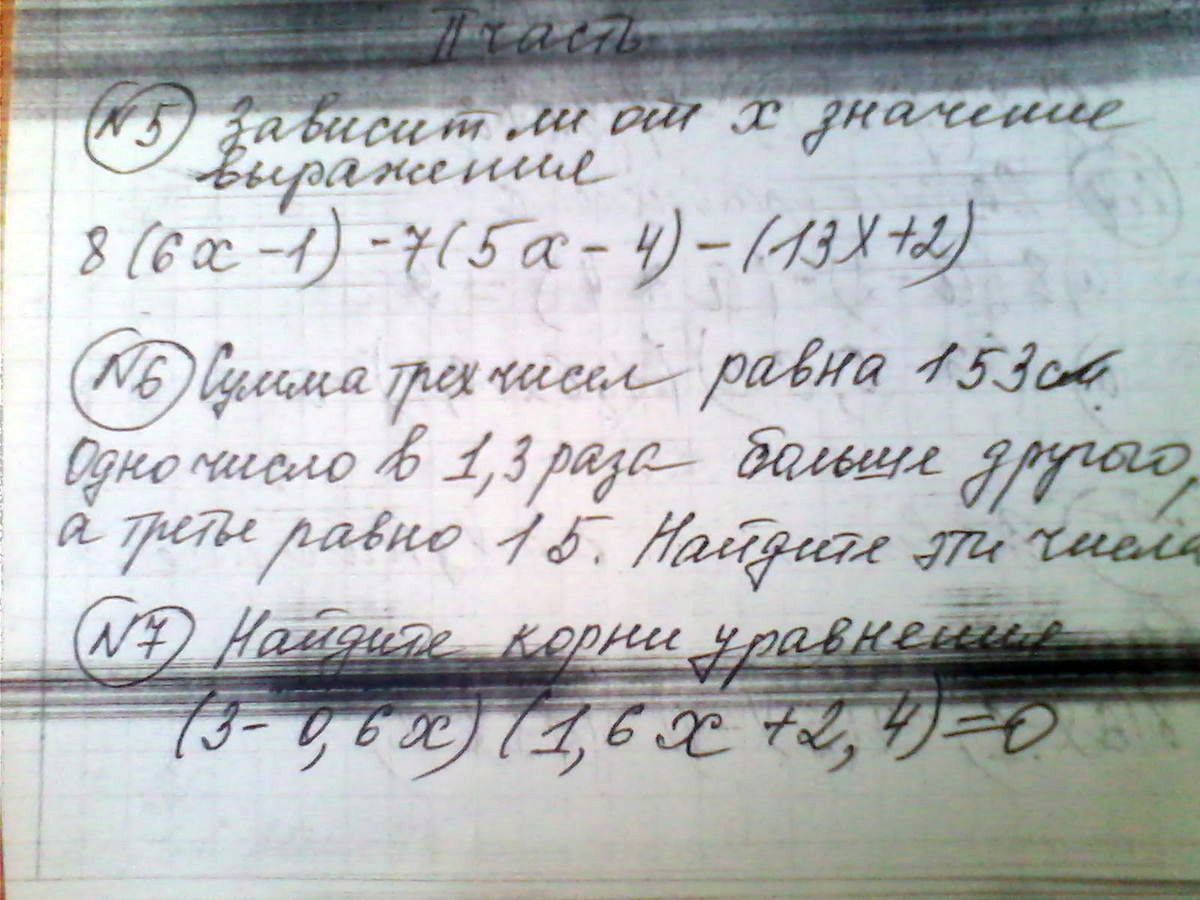 II часть
N5 Зависит ли от x значение
выражения
8(6x-1)-7(5x-4)-(13x+2)
N6 Сумма трех чисел равна 153см.
Одно число в 1,3 раза больше другого,
а третье равно 15. Найдите эти числа
N7 Найдите корни уравнения
(3-0,6x)(1,6x+2,4)=0